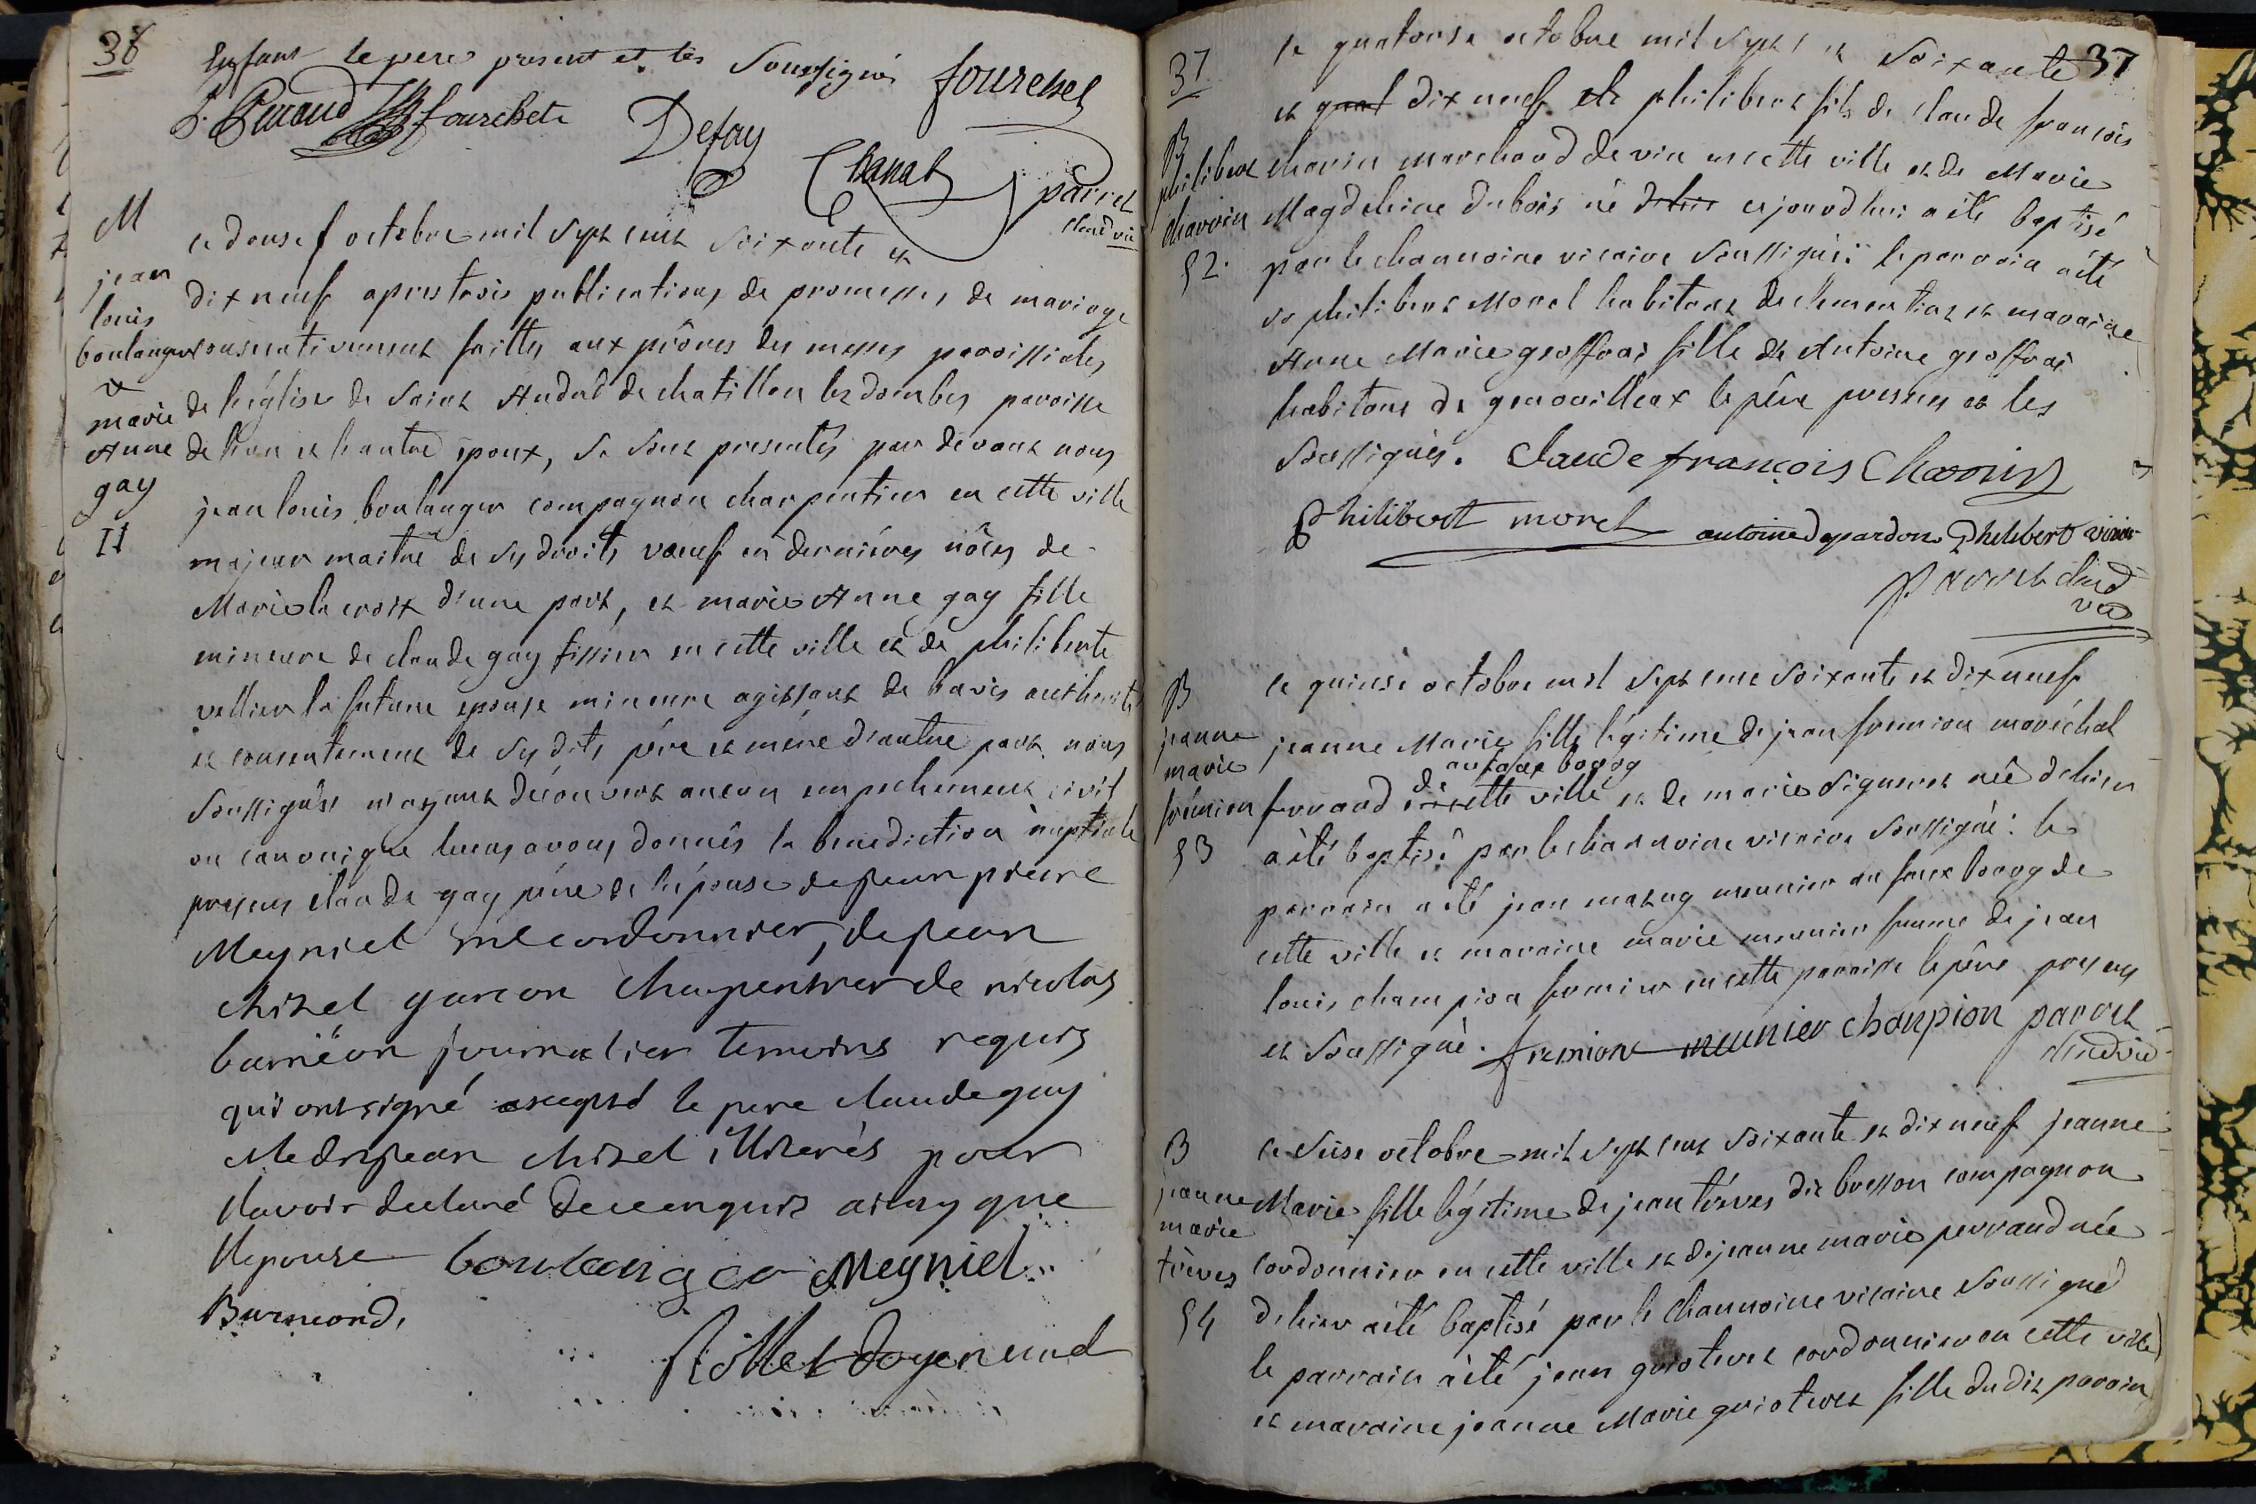 38
Enfant le pere present et les Soussignés fourchet
P. Renaud fourchet Defay
Chanat parret
chne vic
M
jean
louis
boulanger
et
marie
Anne
gay
11
ce douse octobre mil sept cent soixante et
dix neuf apres trois publications de promesses de mariage
consecutivement faittes aux prônes des messes paroissiales
de l'église de saint Andrué de chatillon les dombes paroisse
de l'un et l'autre époux, se sont presentés par devant nous
jean louis boulanger compagnon charpentier en cette ville
majeur maitre de ses droits vœuf en dernières nôces de
Marie la croix d'une part, et marie Anne gay fille
mineure de claude gay tissier en cette ville et de philiberte
vellier la future epouse mineure agissant de l'avis authorité
et consentement de ses dits père et mère d'autre part nous
soussignés n'ayant découvert aucun empechement civil
ou canonique leurs avons donnés la benediction nuptiale
presens claude gay père de l'épouse de sieur pierre
Meyniel me cordonnier, de jean
chizel garcon charpentier de nicolas
burnéon journalier temoins requis
qui ont signé excepté le pere claude gay
& ledit jean chizel illiterés pour
l'avoir declaré de ce enquis ainsy que
l'epouse boulanger Meyniel
Burneond.
Rollet doyen curé
37
37
B
philibert
chavoin
52.
le quatorse octobre mil sept c et soixante
et quat dix neuf et philibert fils de claude françois
chavoin marchand de vin en cette ville et de Marie
Magdeleine dubois né d'hier cejourdhui a été baptisé
par le channoine vicaire soussigné: le parrain a été
sr philibert Morel habitant de clementiat et maraine
Anne Marie geoffrai fille de Antoine geoffrai
habitant de genouilleux le père present et les
soussignés. Claude françois Chavoin
Philibert morel antoine depardon Philibert
parret chne
vic
B
jeanne
marie
frémion
53
ce quinse octobre mil sept cent soixante et dix neuf
jeanne Marie fille légitime de jean fremion maréchal
au faux bourg
ferrand en de cette ville et de marie Signeret née d'hier
a été baptisé par le channoine vicaire soussigné: le
parrain a été jean mazuy meunier au faux bourg de
cette ville et maraine marie meunier femme de jean
louis champion fermier en cette paroisse le père present
et soussigné. fremion meunier chanpion parret
chne vic
B
jeanne
marie
trèves
54
ce seise octobre mil sept cent soixante et dix neuf jeanne
Marie fille légitime de jean trèves dit buisson compagnon
cordonnier en cette ville et de jeanne marie perraud née
d'hier a été baptisé par le channoine vicaire soussigné
le parrain a été jean guiotevet cordonnier en cette ville
et maraine jeanne Marie guiotevet fille du dit parain